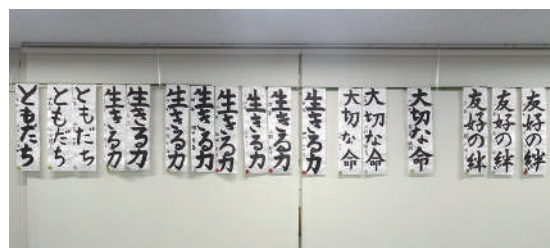 ともだち
ともだち
ともだち
生きる力
生きる力
生きる力
生きる力
生きる力
生きる力
生きる力
生きる力
大切な命
大切な命
大切な命
友好の絆
友好の絆
友好の絆